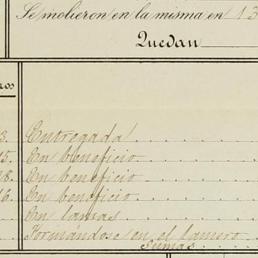 Se molieron en la misma en 13
Quedan
ros
3. Entregada
15. En beneficio
18. En beneficio
16. En beneficio
En lamas
Formándose en el lamero
Sumas